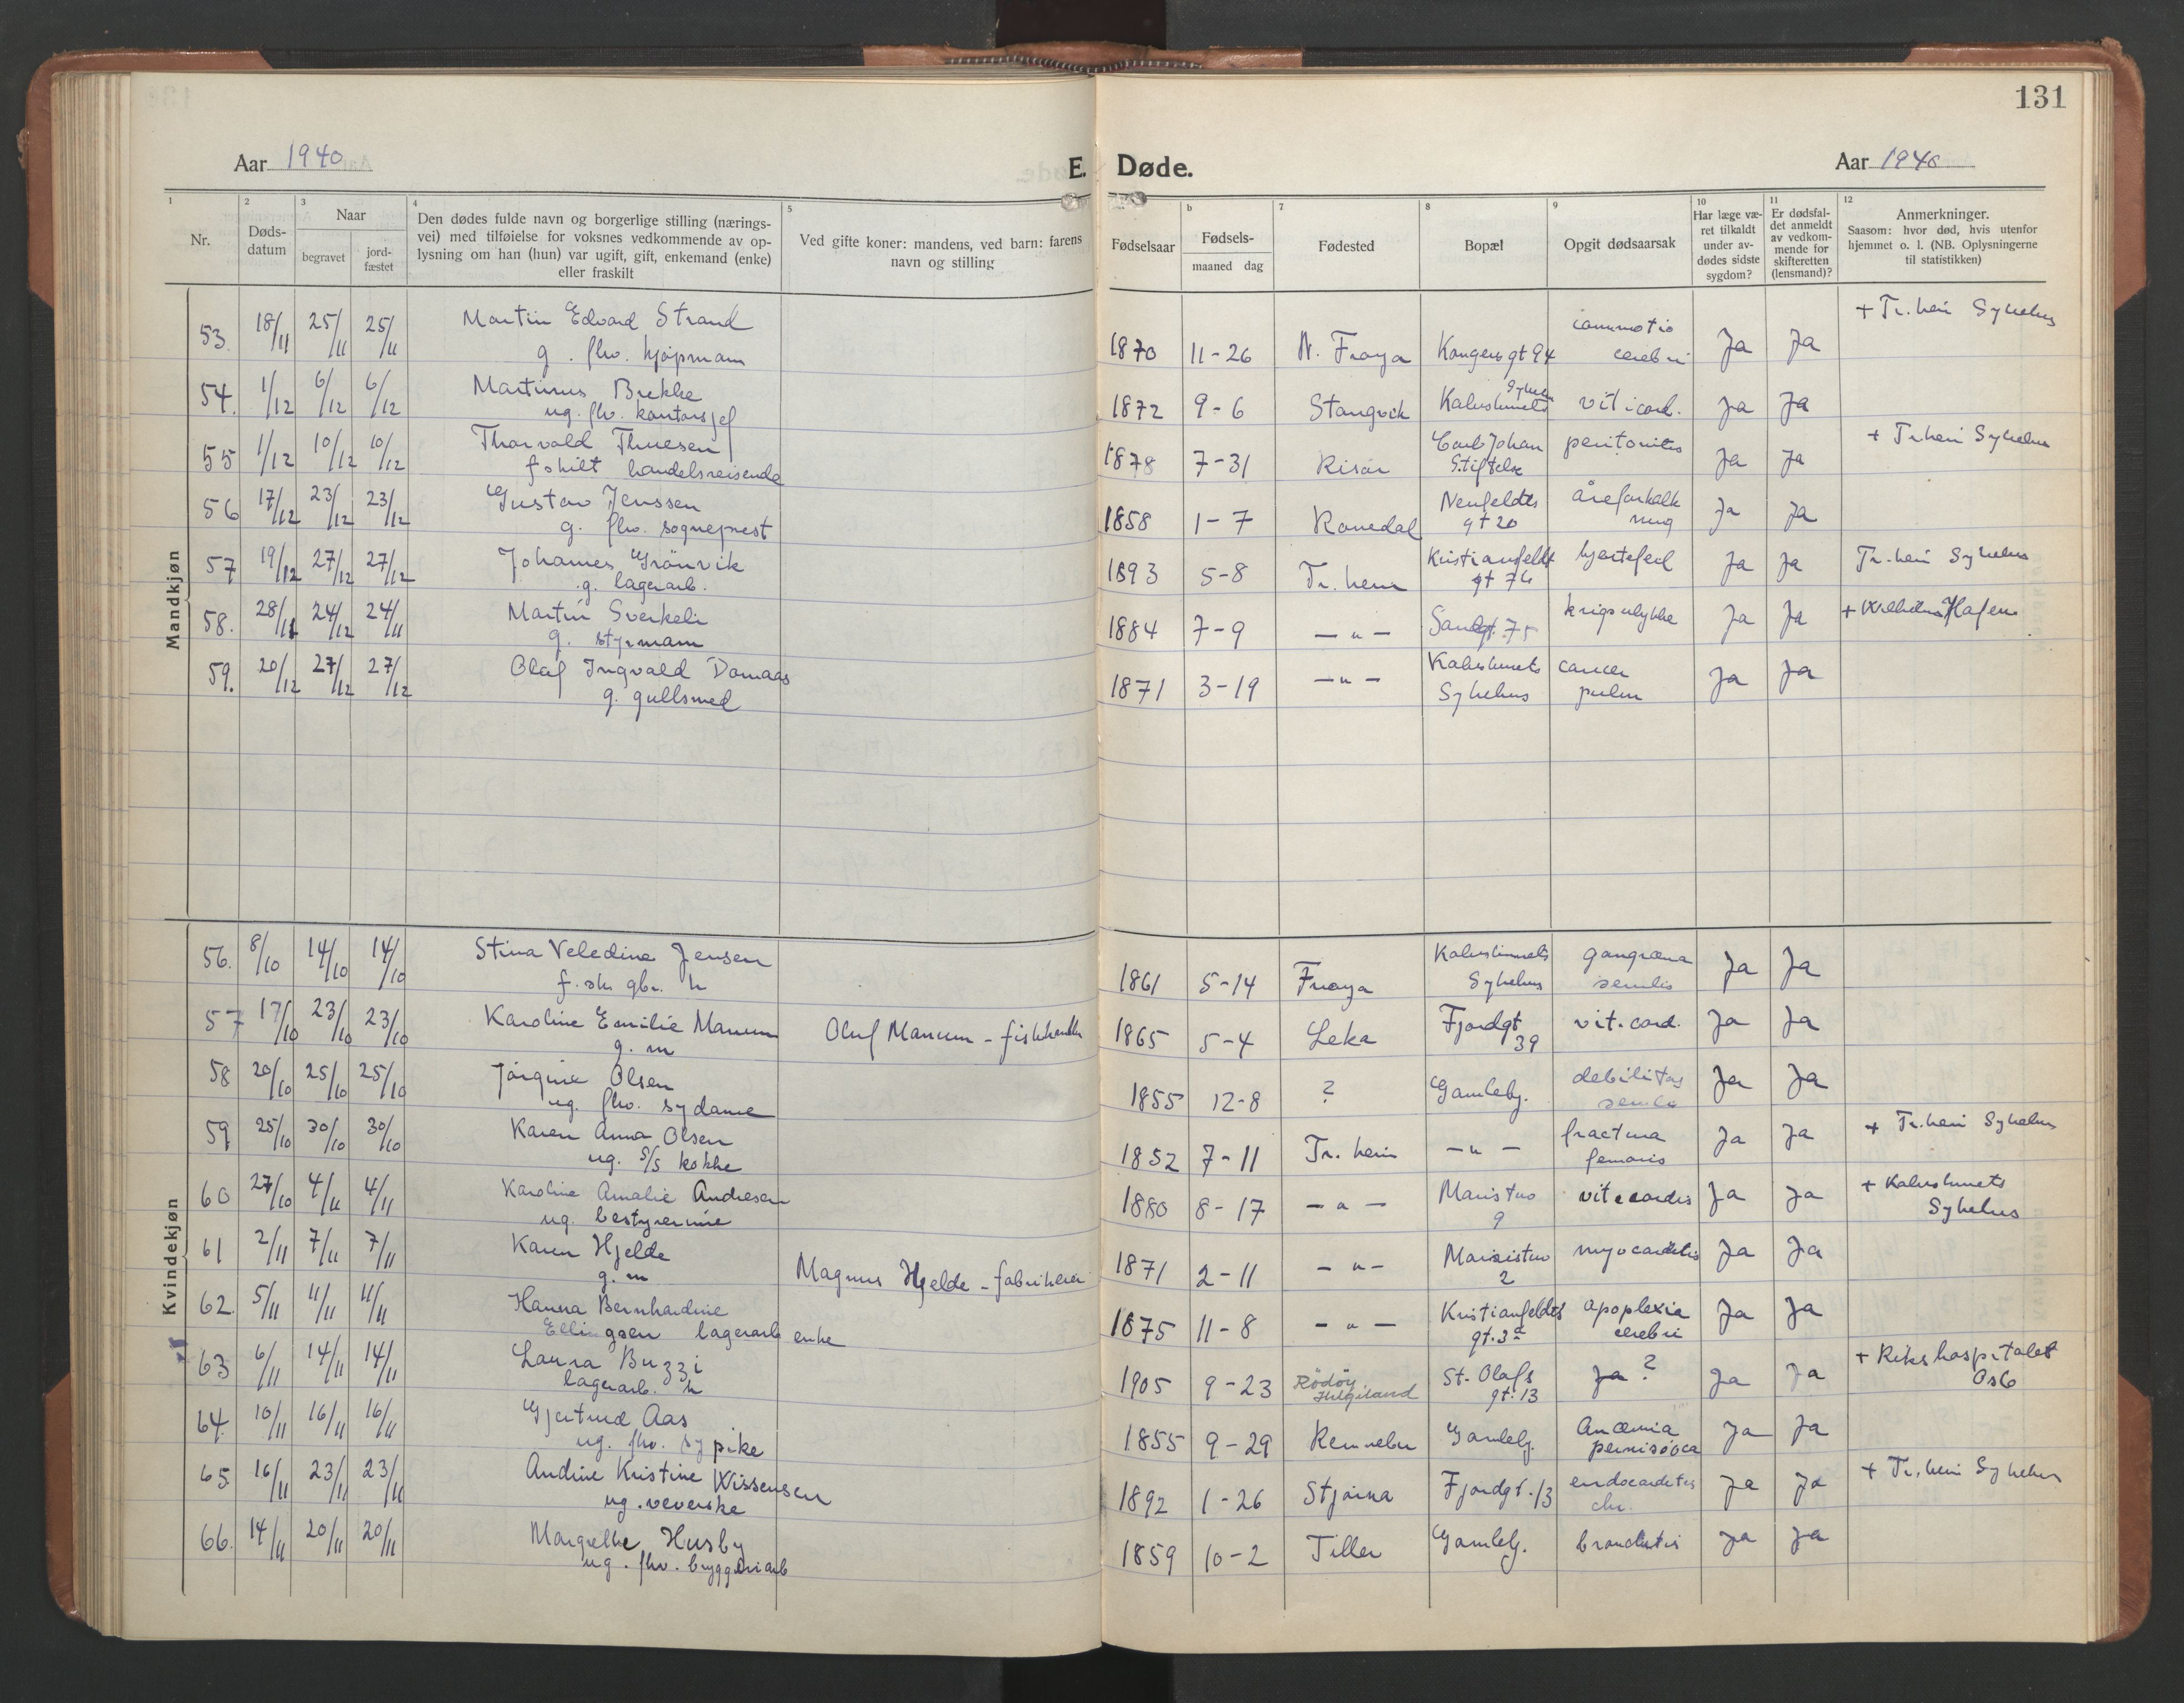 131
Aar 1940 E. Døde. Aar 1940
1 Nr.
2 Døds-datum
3 Naar begravet jord-fæstet
4 Den dødes fulde navn og borgerlige stilling (nærings-
vei) med tilføielse for voksnes vedkommende av op-
lysning om han (hun) var ugift, gift, enkemand (enke)
eller fraskilt
5 Ved gifte koner: mandens, ved barn: farens
navn og stilling
Fødselsaar
b Fødsels-
maaned dag
7 Fødested
8 Bopæl
9 Opgit dødsaarsak
10 Har læge væ-
ret tilkaldt
under av-
dødes sidste
sygdom?
11 Er dødsfal-
det anmeldt
av vedkom-
mende for
skifteretten
(lensmand)?
12 Anmerkninger.
Saasom: hvor død, hvis utenfor
hjemmet o. l. (NB. Oplysningerne
til statistikken)
Mandkjøn
53. 18/11 25/11 25/11 Martin Edvard Strand + Tr.heim Sykehus
g. fhv. kjøpmann 1870 11-26 N. Frøya Kongens gt 94 commotio cerebri Ja Ja
54. 1/12 6/12 6/12 Martinus Brekke
ug. fhv. kontorsjef 1872 9-6 Stangvik Sykehus vit. cord. Ja Ja
55 1/12 10/12 10/12 Thorvald Thuesen + Tr.heim Sykehus
fskilt handelsreisende 1878 7-31 Risør Carl Johan Stiftelse peritonitis Ja Ja
56 17/12 23/12 23/12 Gustav Jenssen
g. fhv. sogneprest 1858 1-7 Neufeldts gt 20 åreforkalkning Ja Ja
57 19/12 27/12 27/12 Johannes Grönvik
g. lagerarb. 1893 5-8 Tr.heim Kristianfeldt gt 76 hjertefeil Ja Ja Tr.heim Sykehus
58. 24/12 24/11 Martin Sverkeli
g. styrmann 1884 7-9 — " — Sandgt. 75 krigsulykke Ja Ja + Wilhelmshafen
59. 20/12 27/12 27/12 Olaf Ingvald Domaas
g. gullsmed 1871 3-19 — " — Sykehus cancer pulm Ja Ja
Kvindekjøn
56. 8/10 14/10 14/10 Stina Veledine Jensen
f. sk. gbr. h 1861 5-14 Frøya Sykehus gangræna senilis Ja Ja
57 17/10 23/10 23/10 Karoline Emilie Manum Oluf Manum – fiskehandler
g. m 1865 5-4 Leka Fjordgt 39 vit. cord. Ja Ja
58 20/10 25/10 25/10 Jørgine Olsen
ug. fhv. sydame 1855 12-8 ? Gamleby. debilitas senilis Ja Ja
59 25/10 30/10 30/10 Karen Anna Olsen + Tr.heim Sykehus
ug. S/S kokke 1852 7-11 Tr.heim — " — fractura femoris Ja Ja
60 27/10 4/11 4/11 Karoline Amalie Andresen
ug. bestyrerinne 1880 8-17 — " — Maristuo 9 vit. cordis Ja Ja + Sykehus
61 2/11 7/11 7/11 Karen Hjelde
g. m Magnus Hjelde – fabrikeier 1871 2-11 — " — 2 myocarditis Ja Ja
62. 5/11 11/11 11/11 Hanna Bernhardine
Ellingsen lagerarb enke 1875 11-8 — " — Kristianfeldts gt. 3a apoplexia cerebri Ja Ja
63 6/11 14/11 14/11 Laura Buzzi + Rikshospitalet Oslo
lagerarb. h 1905 9-23 Rödöy Helgeland St. Olafs gt. 13 Ja ? Ja Ja
64. 10/11 16/11 16/11 Gjertrud Aas
ug. fhv. sypike 1855 9-29 Rennebu Gamleby. Anæmia perniciosa Ja Ja
65. 16/11 23/11 23/11 Andine Kristine Nissensen + Tr.heim Sykehus
ug. veverske 1892 1-26 Stjørna Fjordgt. 13 endocarditis chr. Ja Ja
66. 14/11 20/11 20/11 Margrethe Husby
ug. fhv. bryggeriarb 1859 10-2 Tiller Gamleby. bronchitis Ja Ja